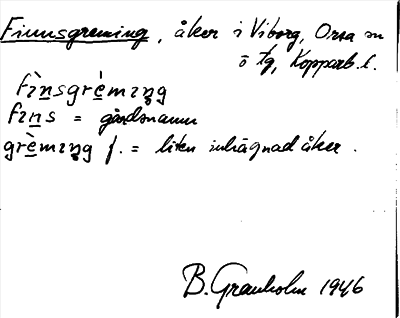 Finnsgreming, åker i Viborg, Orsa sn
ö tg, Kopparb. l.
fìnsgrèmıŋg
fıns = gårdsnamn
grèmıŋg f. = liten inhägnad åker.
B. Granholm 1946